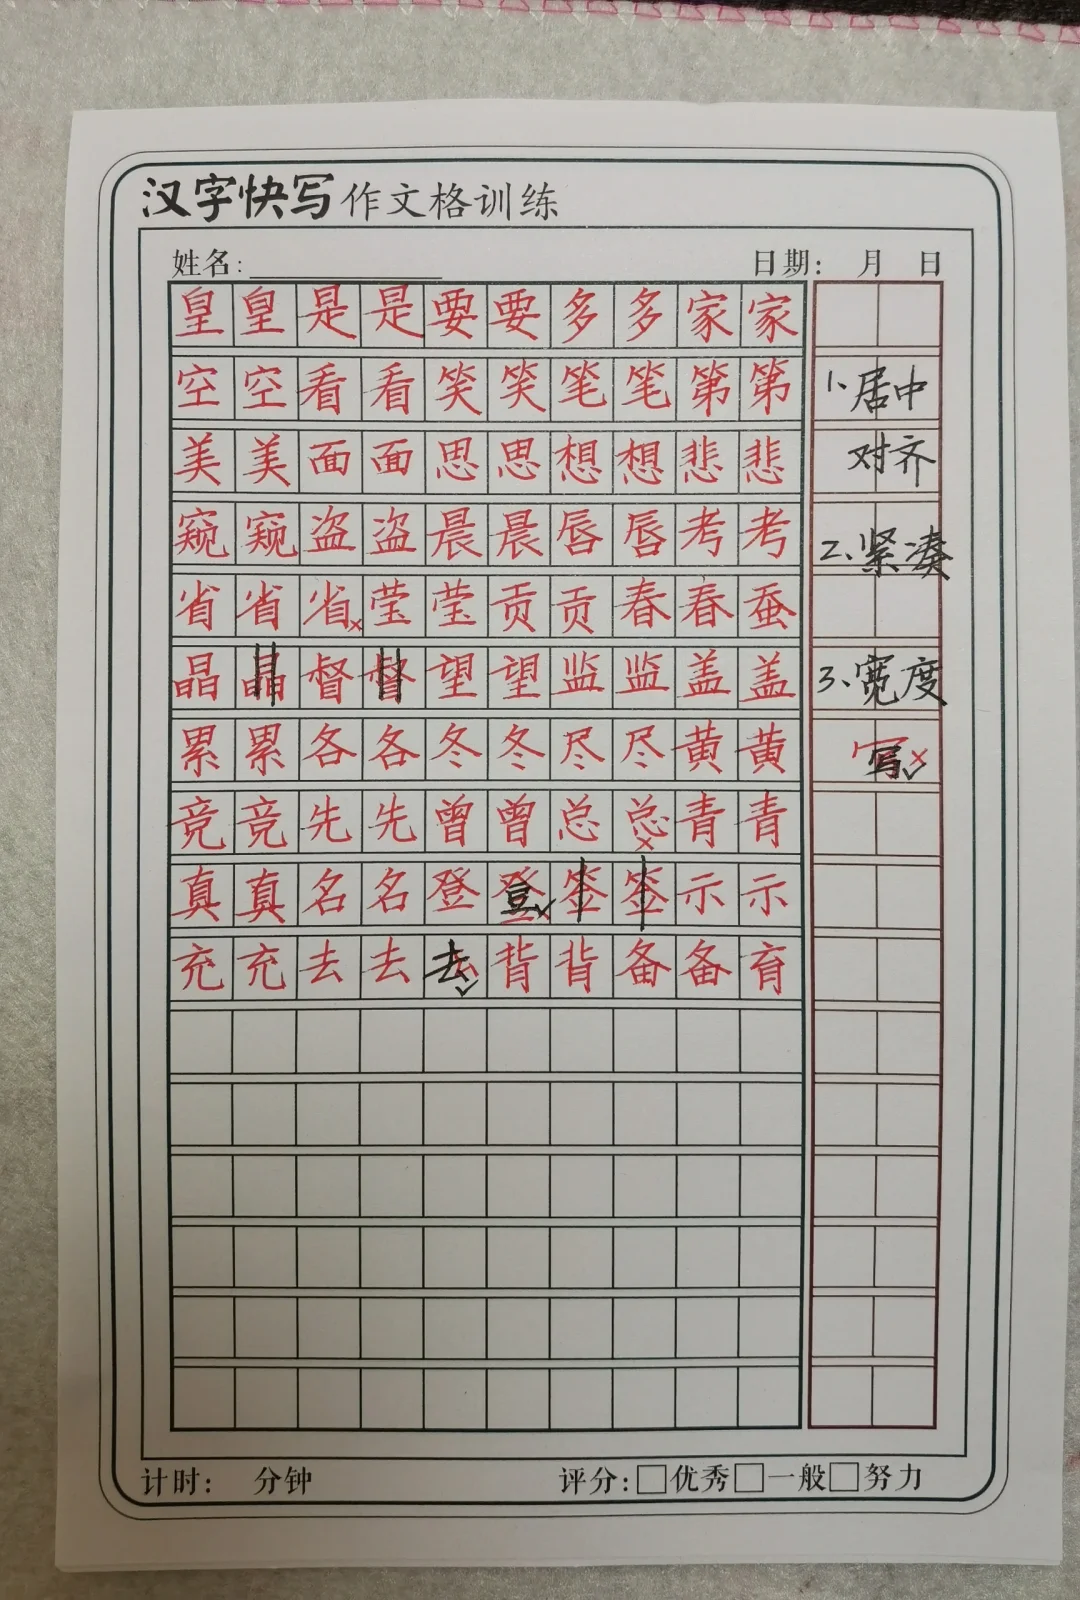 汉字快写作文格训练
姓名: 日期: 月 日
皇皇是是要要多多家家
空空看看笑笑笔笔第第 1、居中
美美面面思思想想悲悲 对齐
窥窥盗盗晨晨唇唇考考 2、紧凑
省省省×莹莹贡贡春春蚕
晶晶督督望望监监盖盖 3、宽度
累累各各冬冬尽尽黄黄 写×✓
竞竞先先曾曾总总×青青
真真名名登登✓签签示示
充充去去去✓背背备备育
计时: 分钟 评分:□优秀□一般□努力